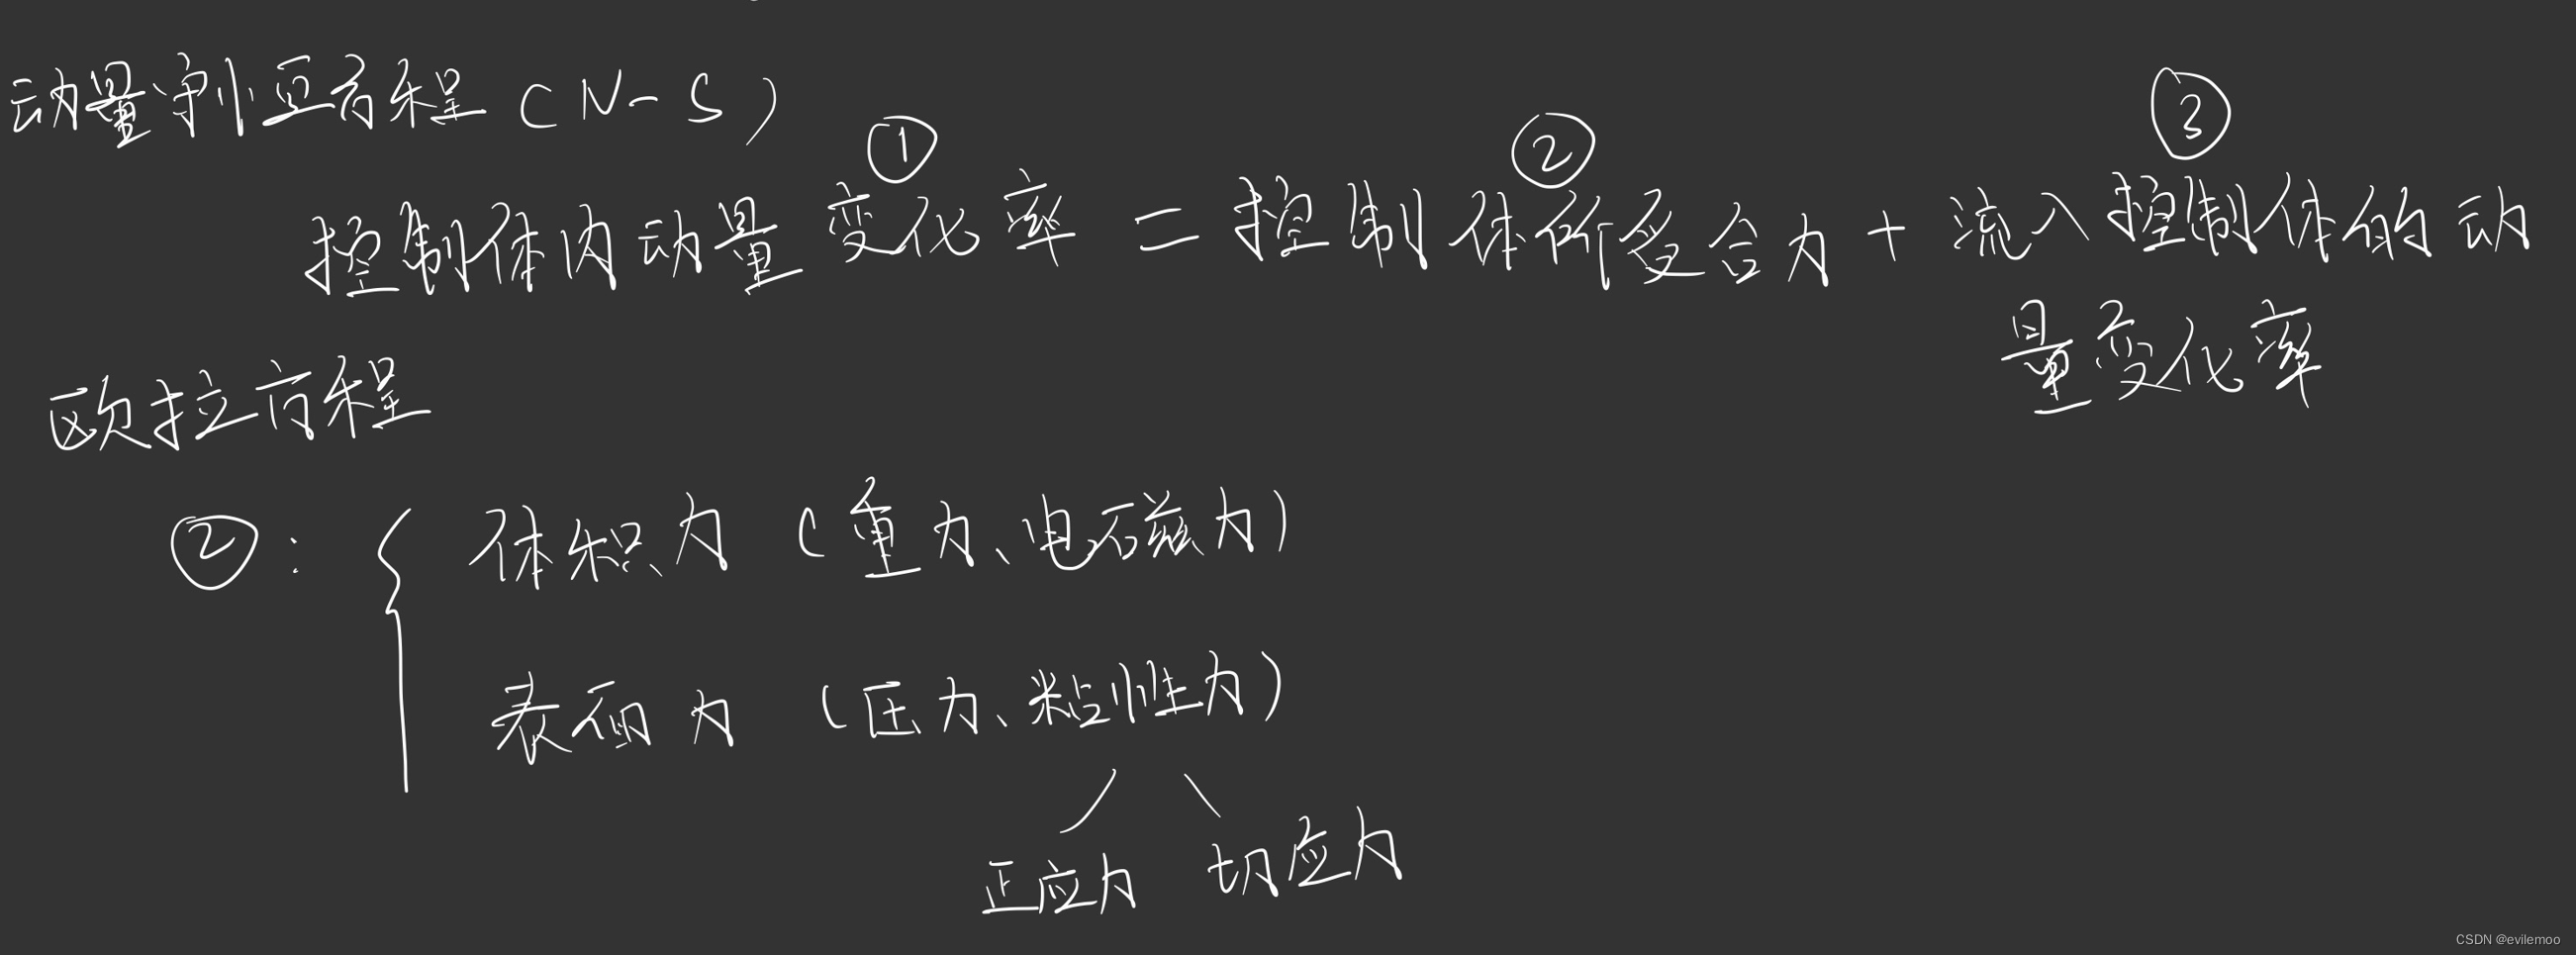 动量守恒方程(N-S)
① ② ③
控制体内动量变化率 = 控制体所受合力 + 流入控制体的动
量变化率
欧拉方程
②: { 体积力(重力、电磁力)
表面力(压力、粘性力)
正应力 切应力
CSDN @evilemoo